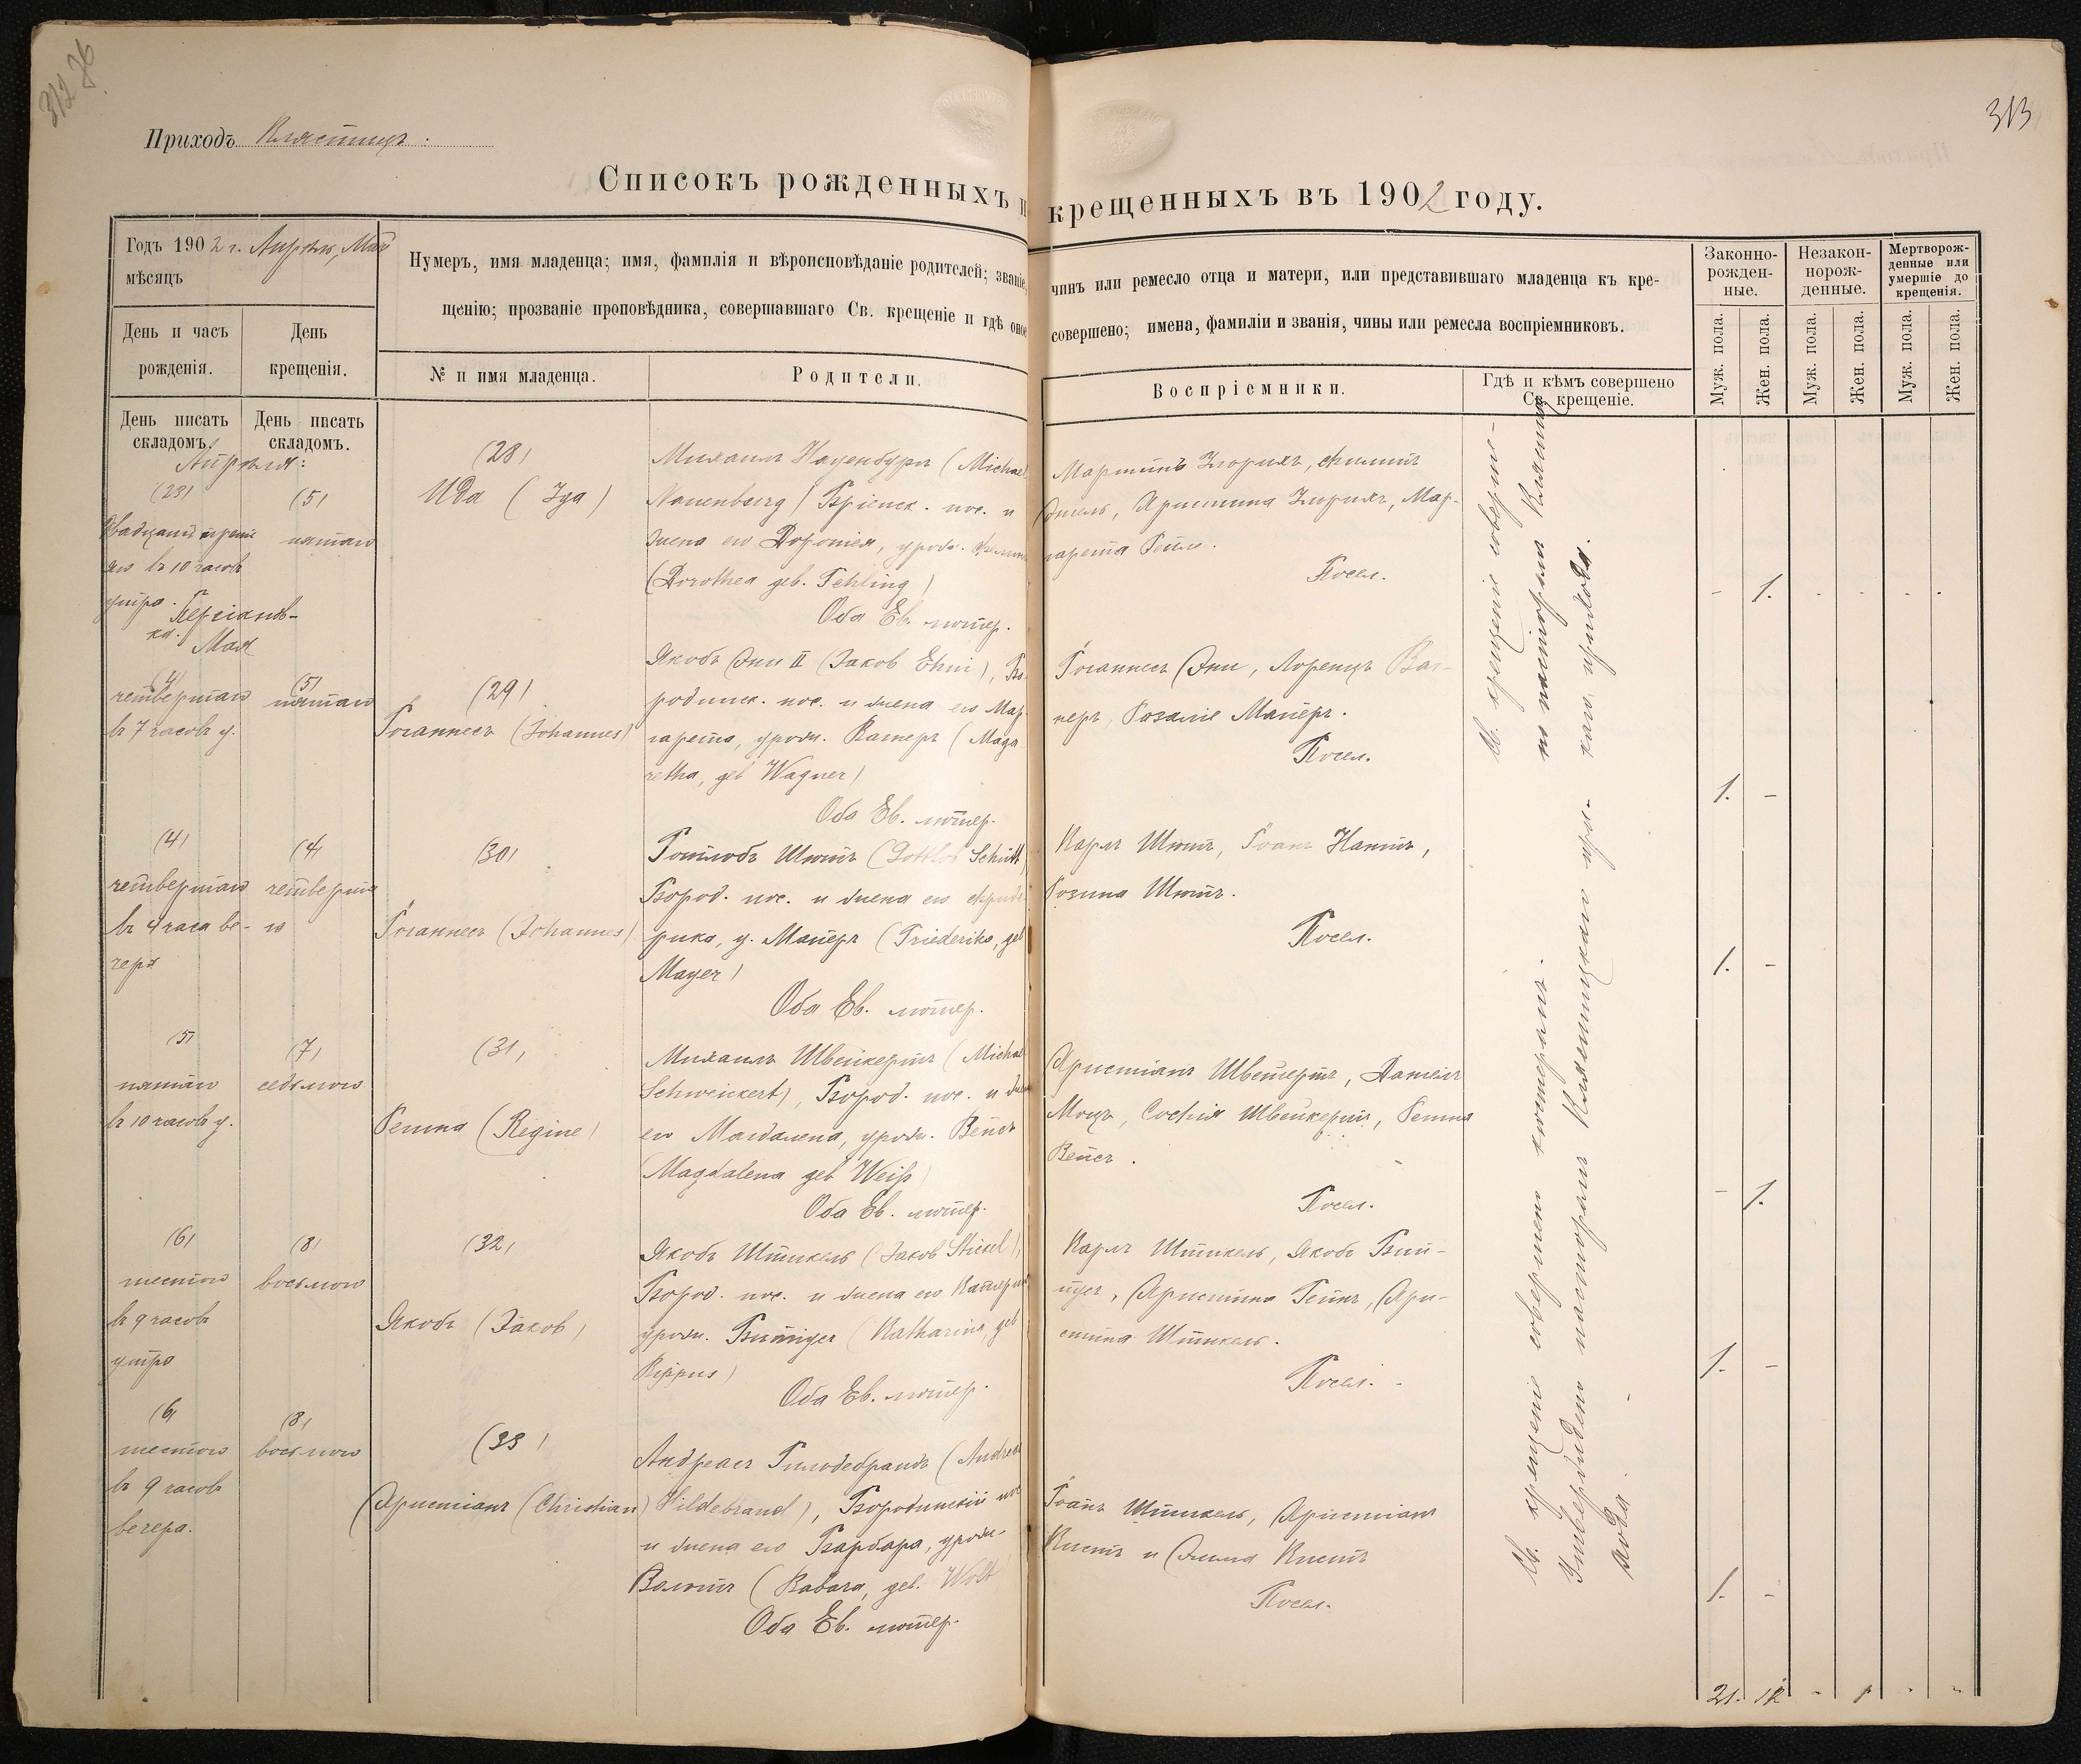 312 об
313
Приходъ Клястицъ :
Списокъ рожденныхъ и крещенныхъ въ 1902 году.
Годъ 1902 г. Апрѣль, Май
мѣсяцъ
Нумеръ, имя младенца; имя, фамилія и вѣроисповѣданіе родителей; званіе, чинъ или ремесло отца и матери, или представившаго младенца къ кре-
щенію; прозваніе проповѣдника, совершавшаго Св. крещеніе и гдѣ оное совершено; имена, фамиліи и званія, чины или ремесла воспріемниковъ.
Законно-
рожден-
ные.
Незакон-
норож-
денные.
Мертворож-
денные или
умершіе до
крещенія.
День и часъ
рожденія.
День
крещенія.
№ и имя младенца.
Родители.
Воспріемники.
Гдѣ и кѣмъ совершено
Св. крещеніе.
Муж. пола.
Жен. пола.
Муж. пола.
Жен. пола.
Муж. пола.
Жен. пола.
День писать
складомъ.
День писать
складомъ.
Апрѣля:
(23)
двадцать третья-
го въ 10 часовъ
утра.
Персіанов-
ка.
(5)
пятаго
(28)
Ида (Ida)
Михаилъ Науенбургъ (Michael
Nauenburg) Бріенск. пос. и
жена его Доротея, урожд.
(Dorothea geb. Fehling)
Оба Ев. лютер.
Мартинъ
Энгель, Христина
гарета
Посел.
- 1. - - - -
Мая
(4)
четвертаго
въ 7 часовъ у.
(5)
пятаго
(29)
Іоганнесъ (Johannes)
Якобъ Эни II (Jakob Ehni), Бо-
родинск. пос. и жена его Мар-
гарета, урожд. Вагнеръ (Marga
retha, geb Wagner)
Оба Ев. лютер.
Іоганнесъ Эни, Лоренцъ Ваг-
неръ, Розалie Майеръ.
Посел.
1. -
(4)
четвертаго
въ 4 часа ве-
чера
(4)
четверта
го
(30)
Іоганнесъ (Johannes)
Готлобъ Шютъ (Gottlob Schütt)
Бород. пос. и жена его Фриде
рика, у. Майеръ (Friederike, geb
Mayer)
Оба Ев. лютер.
Карлъ Шютъ, Іоанъ
Розина Шютъ.
Посел.
1. -
(5)
пятаго
въ 10 часовъ у.
(7)
седьмого
(31)
Регина (Regine)
Михаилъ Швейкертъ (Michael
Schweickert), Бород. пос. и жена
его Магдалена, урожд. Вейсъ
(Magdalena geb Weiß)
Оба Ев. лютер.
Христіанъ Швейкертъ, Даніелъ
Моцъ, Софія Швейкертъ, Регина
Вейсъ.
Посел.
- 1.
(6)
шестого
въ 9 часовъ
утра
(8)
восьмого
(32)
Якобъ (Jakob)
Якобъ Штикель (Jakob Stickel),
Бород. пос. и жена его Катерина
урожд. (Katharine, geb
Rippus)
Оба Ев. лютер.
Карлъ Штикель, Якобъ
Христина
стина Штикель.
Посел.
1. -
(6)
шестого
въ 9 часовъ
вечера.
(8)
восьмого
(33)
Христіанъ (Christian)
Андреасъ Гильдебрандъ (Andreas
Hildebrand), Бородинскій пос
и жена его Барбара, урожд.
Вольтъ (Babara, geb. Wolt
Оба Ев. лютер.
Іоанъ Штикель, Христіанъ
Кистъ и Эмма Кистъ
Посел.
1. -
Св. крещеніе соверше-
но пасторомъ Клястиц-
каго прихода.
Св. крещеніе совершено кистеромъ.
Утверждено пасторомъ Клястицкаго при-
хода.
21. 12 - 1 - -